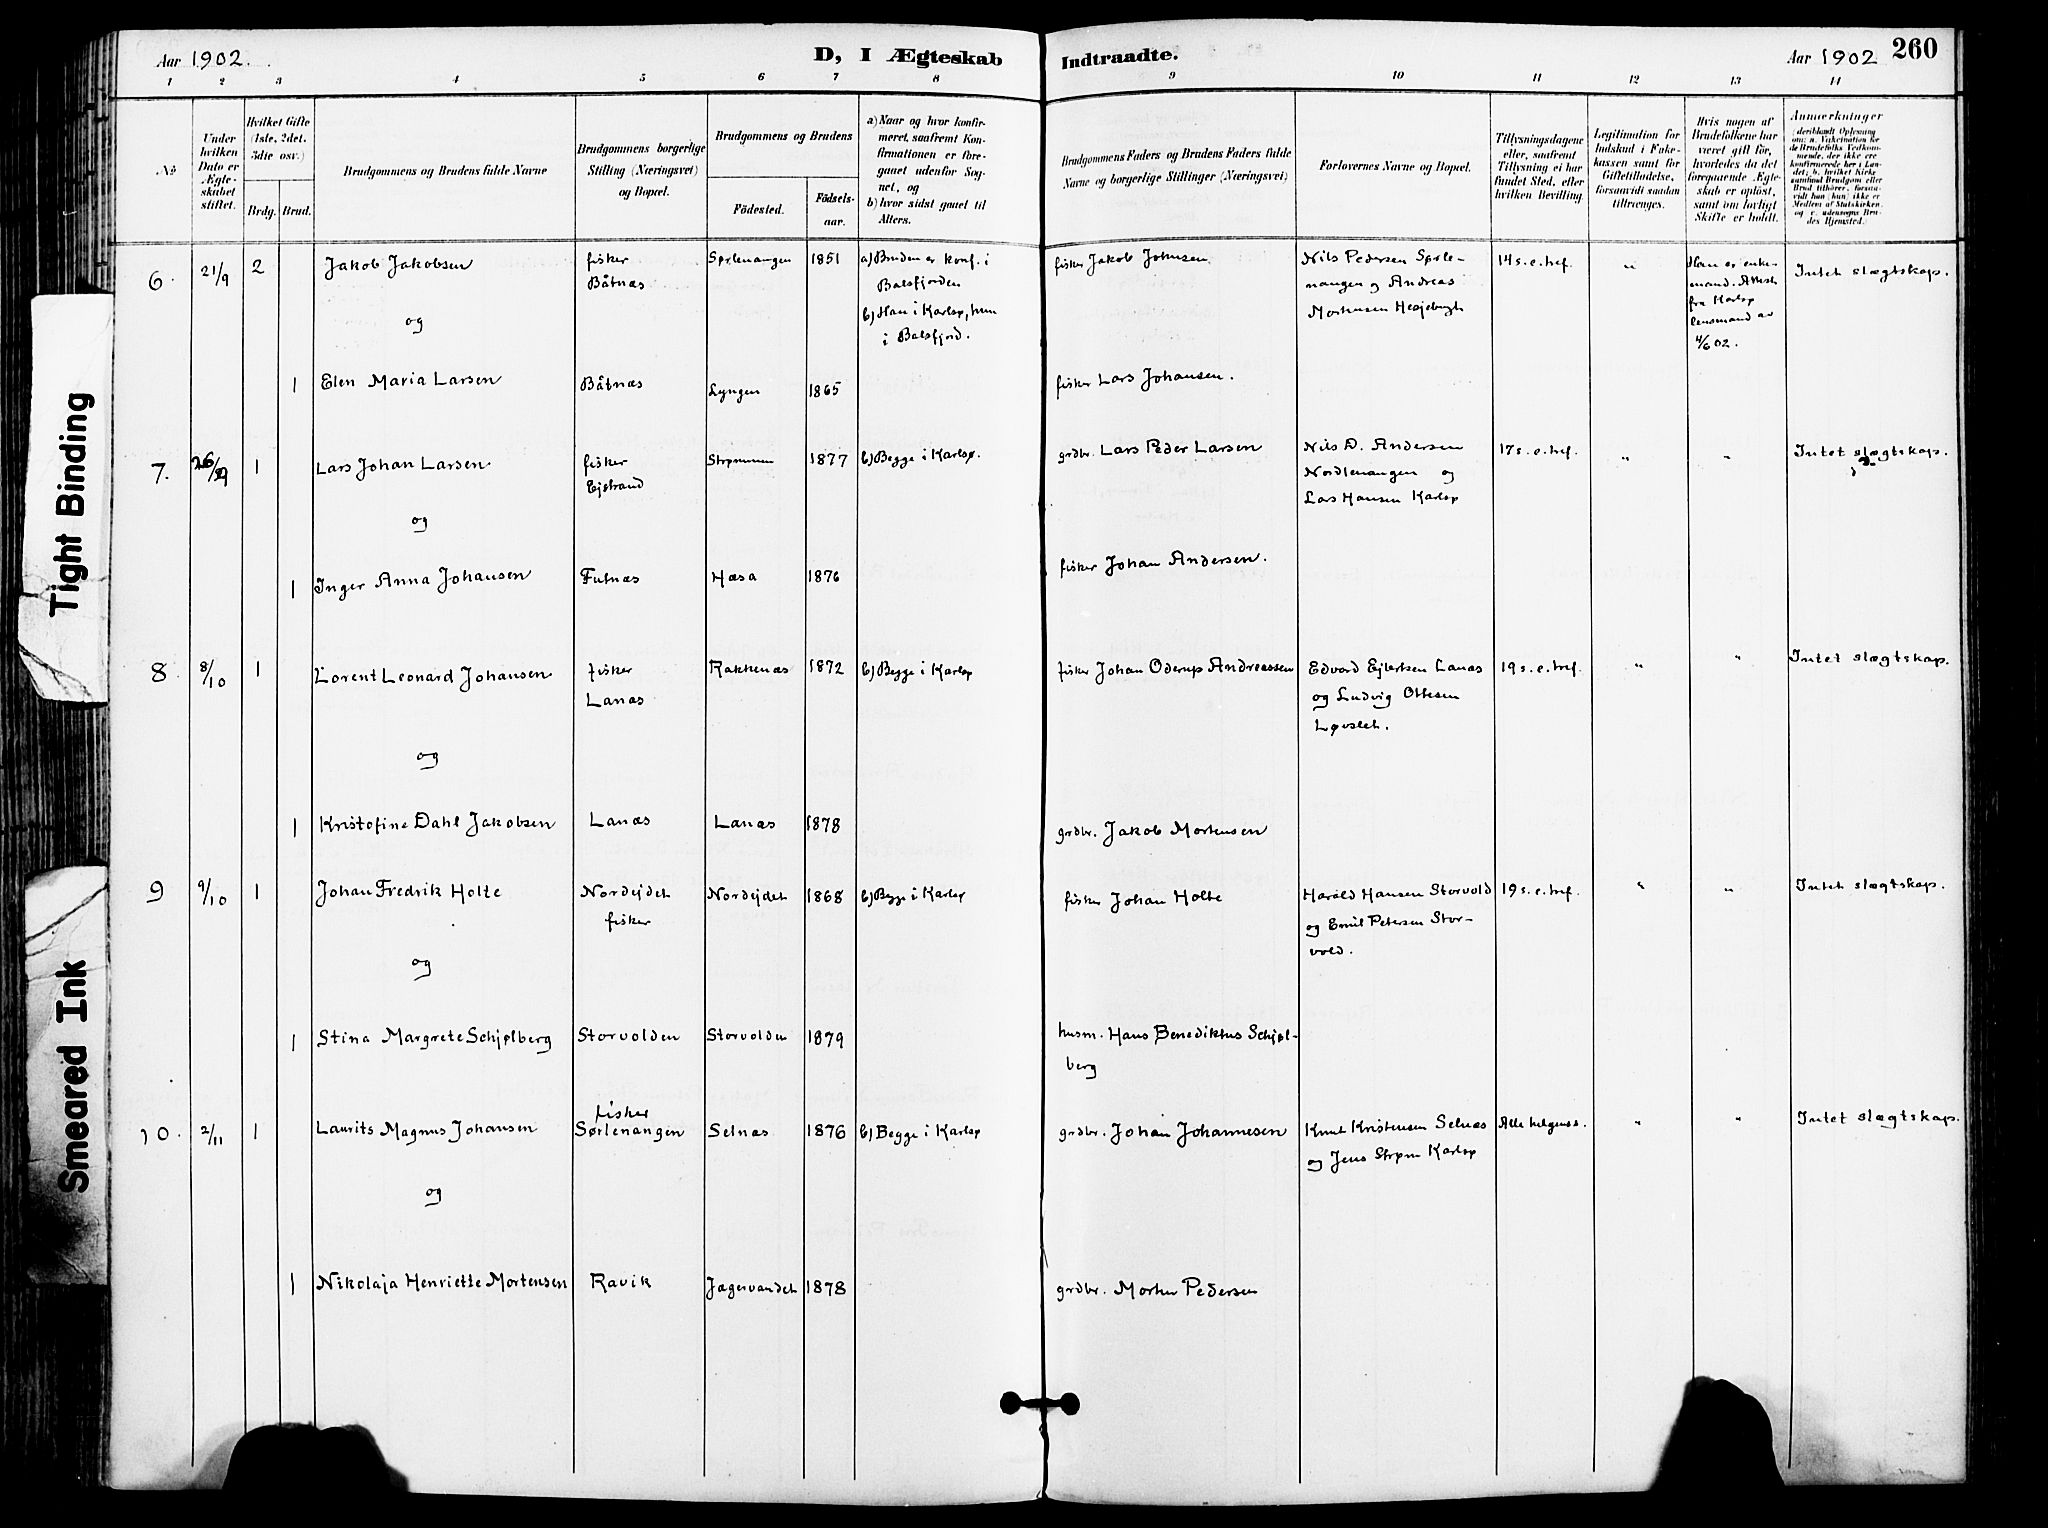 Aar 1902. D, I Ægteskab Indtraadte. Aar 1902 260
1 2 3 4 5 6 7 8 9 10 11 12 13 14
No
Under hvilken Dato er Ægteskabet stiftet.
Hvilket Gifte (1ste, 2det, 3die osv.)
Brdg. Brud.
Brudgommens og Brudens fulde Navne
Brudgommens borgerlige Stilling (Næringsvei) og Bopæl.
Brudgommens og Brudens
Födested. Födsels-aar.
a) Naar og hvor konfir-
meret, saafremt Kon-
firmationen er fore-
gaaet udenfor Sog-
net, og
b) hvor sidst gaaet til
Alters.
Brudgommens Faders og Brudens Faders fulde
Navne og borgerlige Stillinger (Næringsvei)
Forlovernes Navne og Bopæl.
Tillysningsdagene
eller, saafremt
Tillysning ei har
fundet Sted, efter
hvilken Bevilling.
Legitimation for
Indskud i Enke-
kassen samt for
Giftetilladelse,
forsaavidt saadan
tiltrænges.
Hvis nogen af
Brudefolkene har
været gift før,
hvorledes da det
foregaaende Ægte-
skab er opløst,
samt om lovligt
Skifte er holdt.
Anmærkninger
(deriblandt Oplysning
om: a. Vakcination for
de Brudefolks Vedkom-
mende, der ikke ere
konfirmerede her i Lan-
det; b. hvilket Kirke-
samfund Brudgom eller
Brud tilhører, forsaa-
vidt han (hun) ikke er
Medlem af Statskirken,
og c. udensogns Bru-
des Hjemsted.
6. 21/9 2 Jakob Jakobsen fisker Båtnæs Sørlenangen 1851
a) Bruden er konf. i
Balsfjorden
b) Han i Karlsø, hun
i Balsfjord.
fisker Jakob Johnsen
Nils Pedersen Sørle-
nangen og Andreas
Mortensen
14 s. e. tref. "
Han er enke-
mand. Attest
fra Karlsø
lensmand av
4/6 02.
Intet slægtskap.
og
1 Elen Maria Larsen Båtnæs Lyngen 1865 fisker Lars Johansen.
7. 26/9 1 Lars Johan Larsen fisker Ejstrand Strømmen 1877 b) Begge i Karlsø. grdbr. Lars Peder Larsen
Nils D. Andersen
Nordlenangen og
Lars Hansen Karlsø
17 s. e. tref. " " Intet slægtskap.
og
1 Inger Anna Johansen Futnæs Hæsa 1876 fisker Johan Andersen.
8 8/10 1 Lorent Leonard Johansen fisker Lanæs Rakkenæs 1872 b) Begge i Karlsø fisker Johan Oderup Andreassen
Edvard Ejlertsen Lanæs
og Ludvig Ottesen
Løvslet.
19 s. e. tref. " " Intet slægtskap.
og
1 Kristofine Dahl Jakobsen Lanæs Lanæs 1878 grdbr. Jakob Mortensen
9 9/10 1 Johan Fredrik Holte Nordejdet fisker Nordejdet 1868 b) Begge i Karlsø fisker Johan Holte
Harald Hansen Storvold
og Emil Petersen Stor-
vold.
19 s. e. tref. " " Intet slægtskap.
og
1 Stina Margrete Schjølberg Storvolden Storvolden 1879 husm. Hans Benediktus Schjøl-
berg
10. 2/11 1 Laurits Magnus Johansen fisker Sørlenangen Selnæs 1876 b) Begge i Karlsø grdbr. Johan Johannesen
Knut Kristensen Selnæs
og Jens Strøm Karlsø
Alle helgens. " " Intet slægtskap.
og
1 Nikolaja Henriette Mortensen Ravik Jægervandet 1878 grdbr. Morten Pedersen
Tight Binding
Smeared Ink